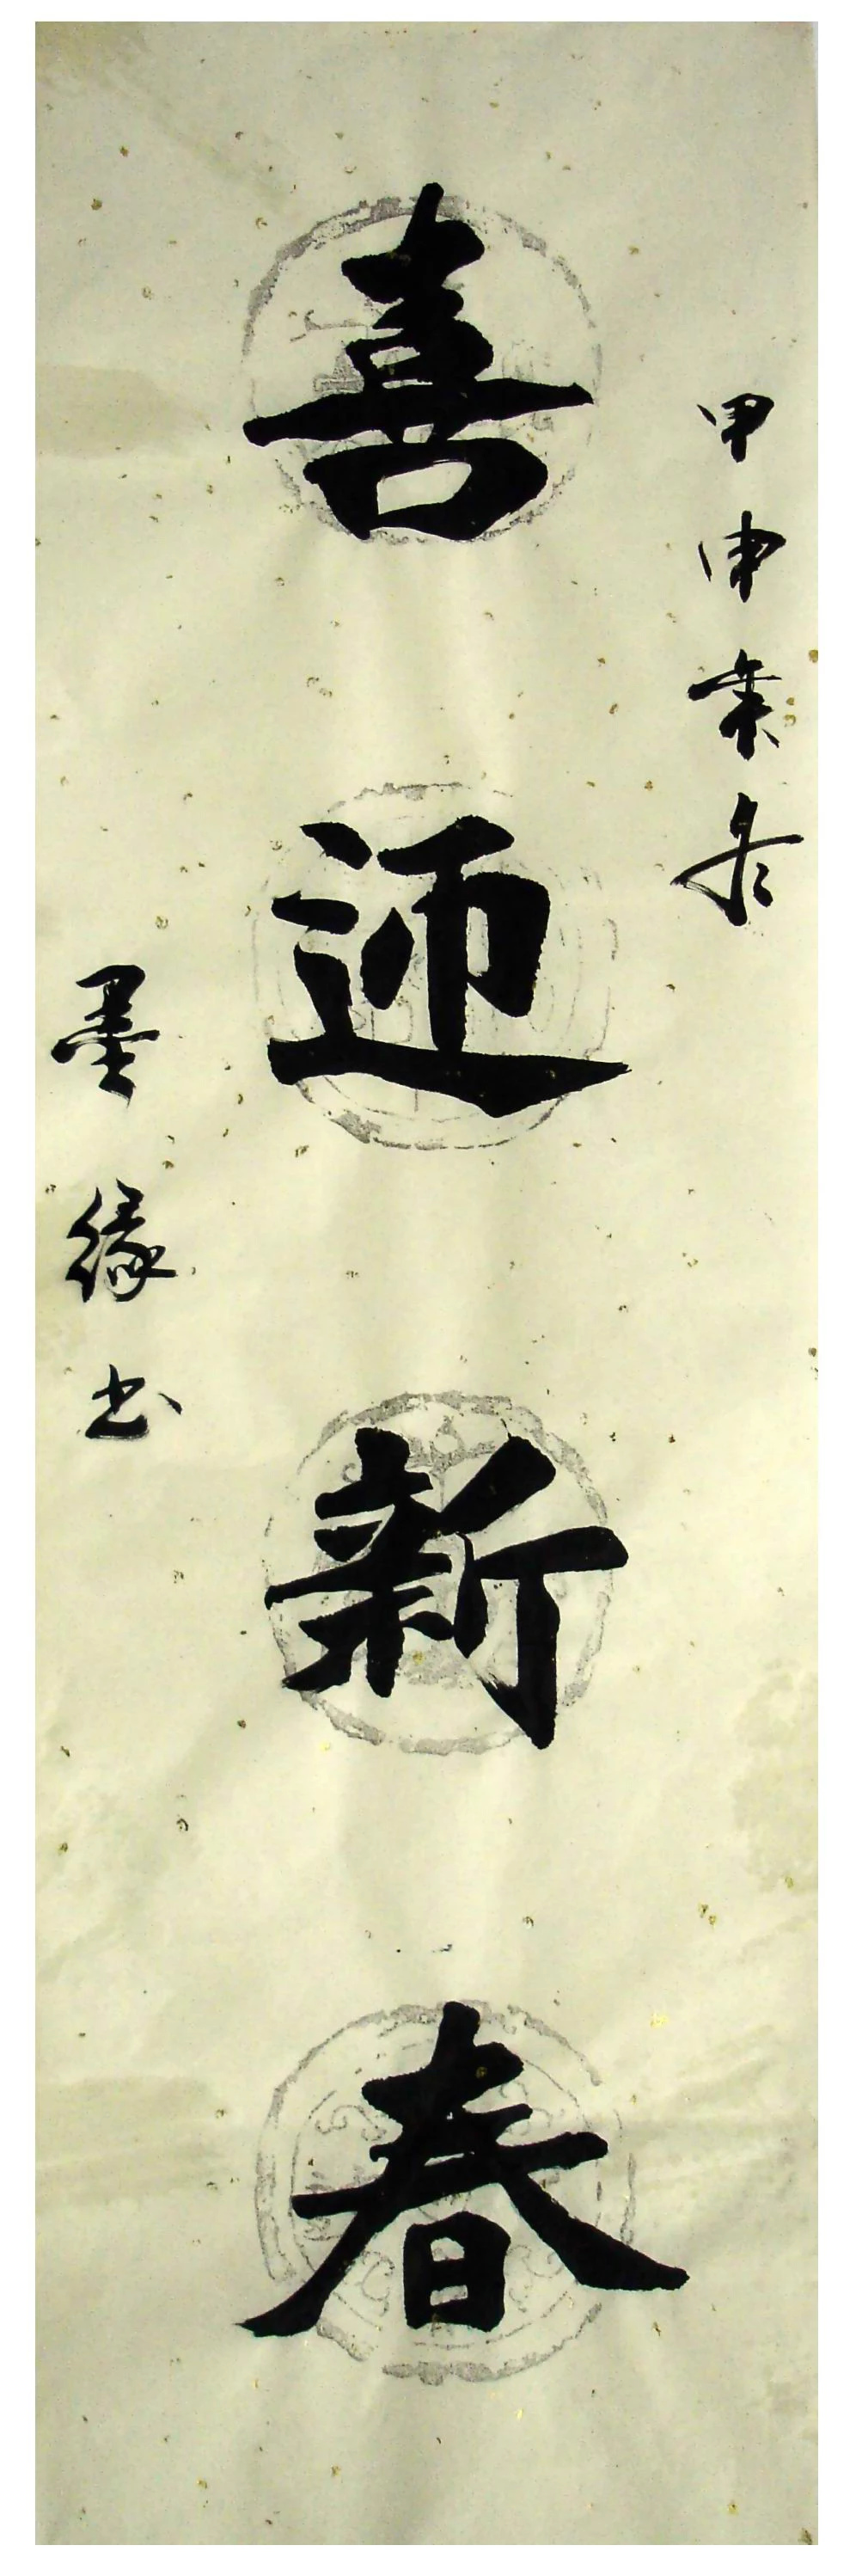 甲申年冬
喜迎新春
墨缘书